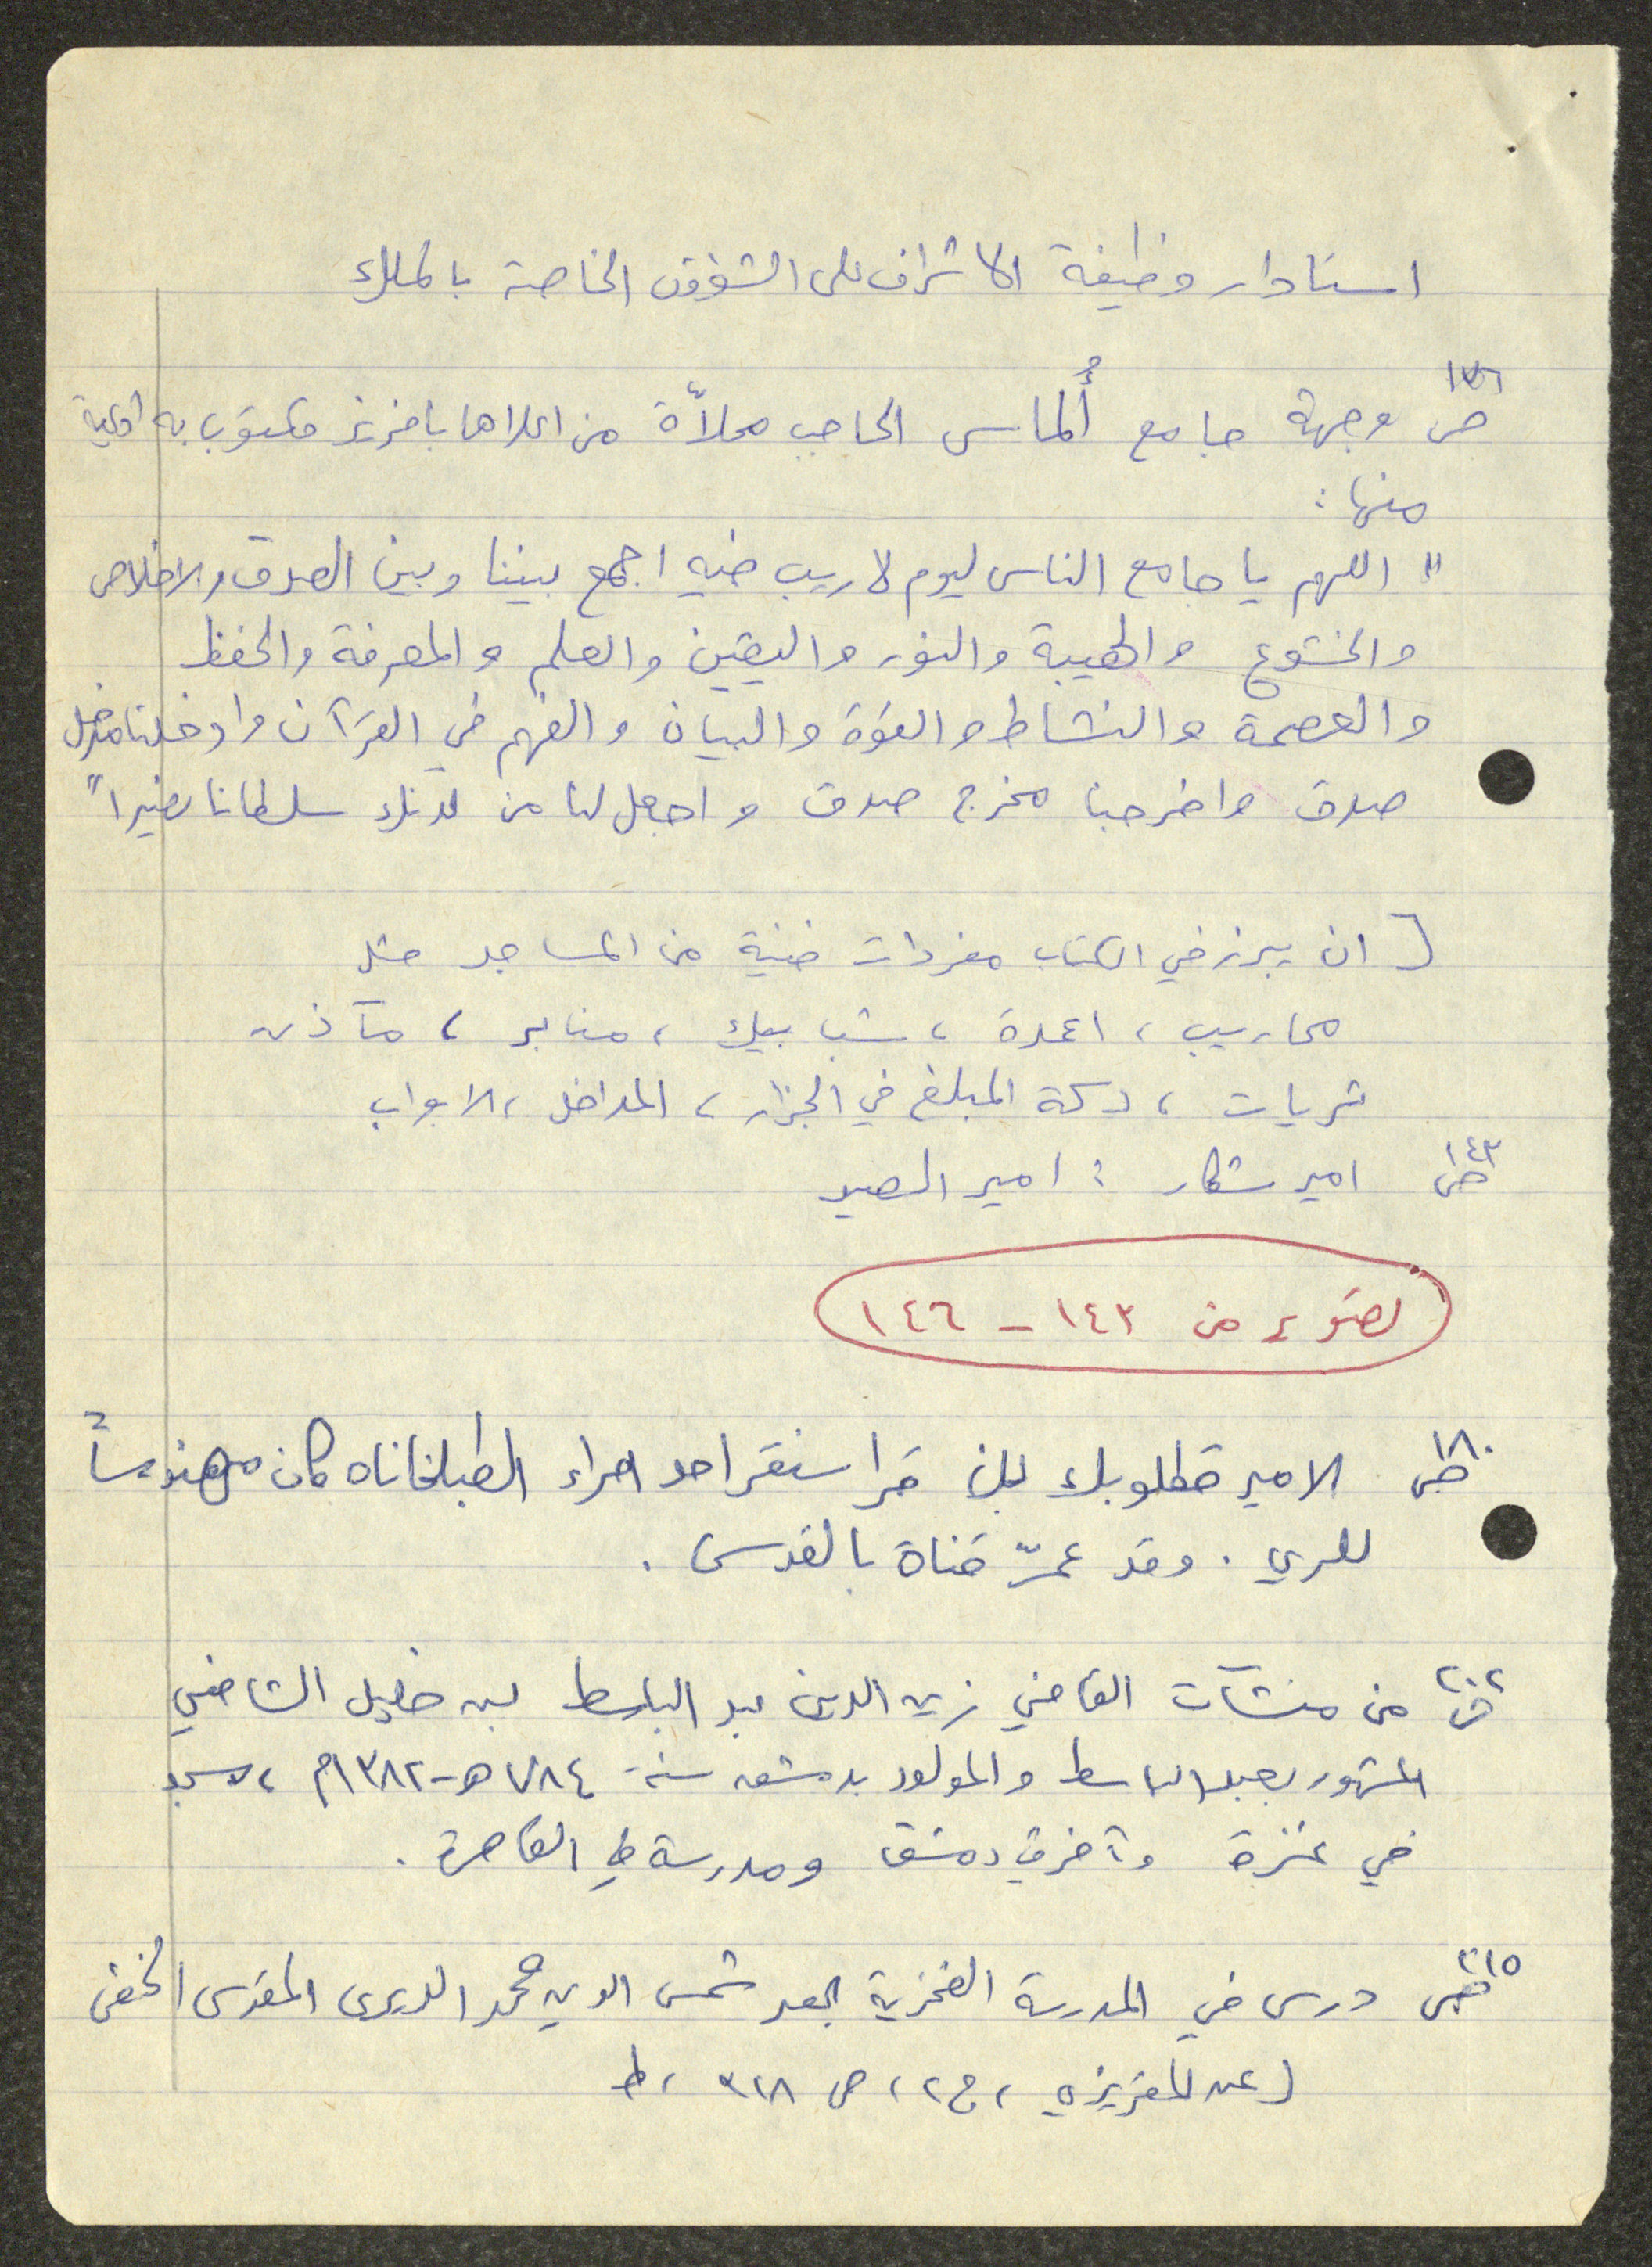 استادار وظيفة الاشراف على الشؤون الخاصة بالملك
ص١٣٦ وجهة جامع أُلماس الحاجب محلاّة من اعلاها بافريز مكتوب به ادعية
منها:
" اللهم يا جامع الناس ليوم لا ريب فيه اجمع بيننا وبين الصدق والاخلاص
والخشوع والهيبة والنور واليقين والعلم والمعرفة والحفظ
والعصمة والنشاط والقوة والبيان والفهم في القرآن وادخلنا مدخل
صدق واخرجنا مخرج صدق واجعل لنا من لدنك سلطانا نصيرا"
[ ان يبرز في الكتاب مفردات فنية من المساجد مثل
محاريب، اعمدة، شبابيك، منابر، مآذن
ثريات، دكة المبلغ في الجزار، المداخل، الابواب
ص١٤٣ امير شكار : امير الصيد
تصوير من ١٤٣ - ١٤٦
ص١٨٠ الامير قطلوبك بن قراسنقر احد امراء الطبلخاناه كان مهندساً
للري. وقد عمرّ قناة بالقدس.
ص٢٠٢ من منشآت القاضي زين الدين عبد الباسط بن خليل الشافعي
المشهور بعبد الباسط والمولود بدمشق سنة ٧٨٤هـ - ١٣٨٢م، مسجد
في غزة وآخر في دمشق ومدرسة في القاهرة.
ص٢١٥ درس في المدرسة الفخرية بعد شمس الدين محمد الديري المقدسي الحنفي
(عن المقريزي، ج٢، ص ٣٢٨، ط